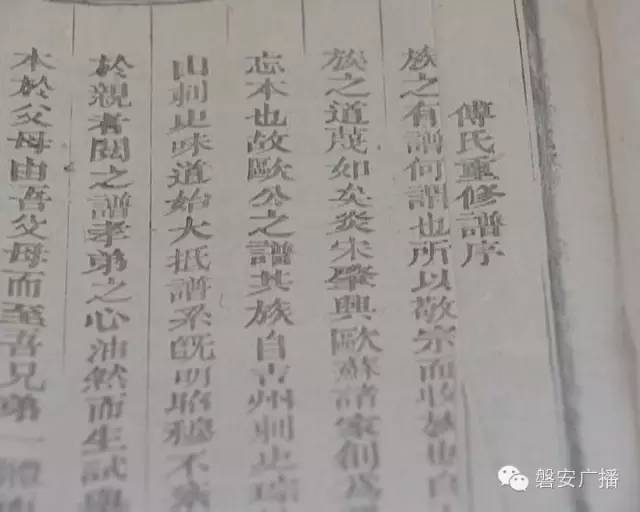 傅氏重修譜序
族之有譜何謂也所以敬宗而收族也自
族之道蔑如矣炎宋肇興歐蘇諸家創爲
忘本也故歐公之譜其族自吉州刺史琮
山刺史味道始大抵譜系既明昭穆不紊
於親者閱之譜孝弟之心油然而生試思
本於父母由吾父母而至吾兄弟一體而
磐安广播